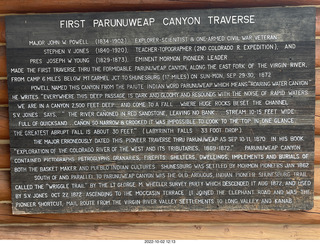 FIRST PARUNUWEAP CANYON TRAVERSE
MAJOR JOHN W. POWELL (1834-1902), EXPLORER-SCIENTIST & ONE-ARMED CIVIL WAR VETERAN,
STEPHEN V. JONES (1840-1920), TEACHER-TOPOGRAPHER (2ND COLORADO R. EXPEDITION), AND
PRES JOSEPH W YOUNG (1829-1873), EMINENT MORMON PIONEER LEADER
MADE THE FIRST TRAVERSE THRU THE FORMIDABLE PARUNUWEAP CANYON, ALONG THE EAST FORK OF THE VIRGIN RIVER,
FROM CAMP 6 MILES BELOW MT CARMEL JCT TO SHUNESBURG (17 MILES) ON SUN-MON, SEP. 29-30, 1872
POWELL NAMED THIS CANYON FROM THE PAIUTE INDIAN WORD PARUNUWEAP WHICH MEANS "ROARING WATER CANYON"
HE WRITES, "EVERYWHERE THIS DEEP PASSAGE IS DARK AND GLOOMY AND RESOUNDS WITH THE NOISE OF RAPID WATERS
WE ARE IN A CANYON 2,500 FEET DEEP - AND COME TO A FALL WHERE HUGE ROCKS BESET THE CHANNEL
S.V. JONES SAYS, " THE RIVER CANONED IN RED SANDSTONE, LEAVING NO BANK STREAM 10-15 FEET WIDE,
FULL OF QUICKSAND CANON SO NARROW & CROOKED IT WAS IMPOSSIBLE TO LOOK TO THE TOP IN ONE GLANCE
THE GREATEST ABRUPT FALL IS ABOUT 30 FEET." (LABYRINTH FALLS 33 FOOT DROP)
THE MAJOR ERRONEOUSLY DATED THIS PIONEER TRAVERSE THRU PARUNUWEAP AS SEP 10-11, 1870 IN HIS BOOK
"EXPLORATION OF THE COLORADO RIVER OF THE WEST AND ITS TRIBUTARIES, 1869-1872." PARUNUWEAP CANYON
CONTAINED PICTOGRAPHS, PETROGLYPHS, GRANARIES, FIREPITS, SHELTERS, DWELLINGS, IMPLEMENTS AND BURIALS OF
BOTH THE BASKET MAKER AND PUEBLO INDIAN CULTURES SHUNESBURG WAS SETTLED BY MORMON PIONEERS JAN 1862
SOUTH OF AND PARALLEL TO PARUNUWEAP CANYON WAS THE OLD ARDUOUS INDIAN PIONEER SHUNESBURG TRAIL
CALLED THE "WRIGGLE TRAIL" BY THE LT GEORGE M. WHEELER SURVEY PARTY WHICH DESCENDED IT AUG 1872, AND USED
BY S.V. JONES OCT 22, 1872 ASCENDING TO THE MOCCASIN TERRACE IT JOINED THE ELEPHANT ROAD AND WAS THE
PIONEER SHORTCUT, MAIL ROUTE FROM THE VIRGIN RIVER VALLEY SETTLEMENTS TO LONG VALLEY AND KANAB
2022-10-02 12:13